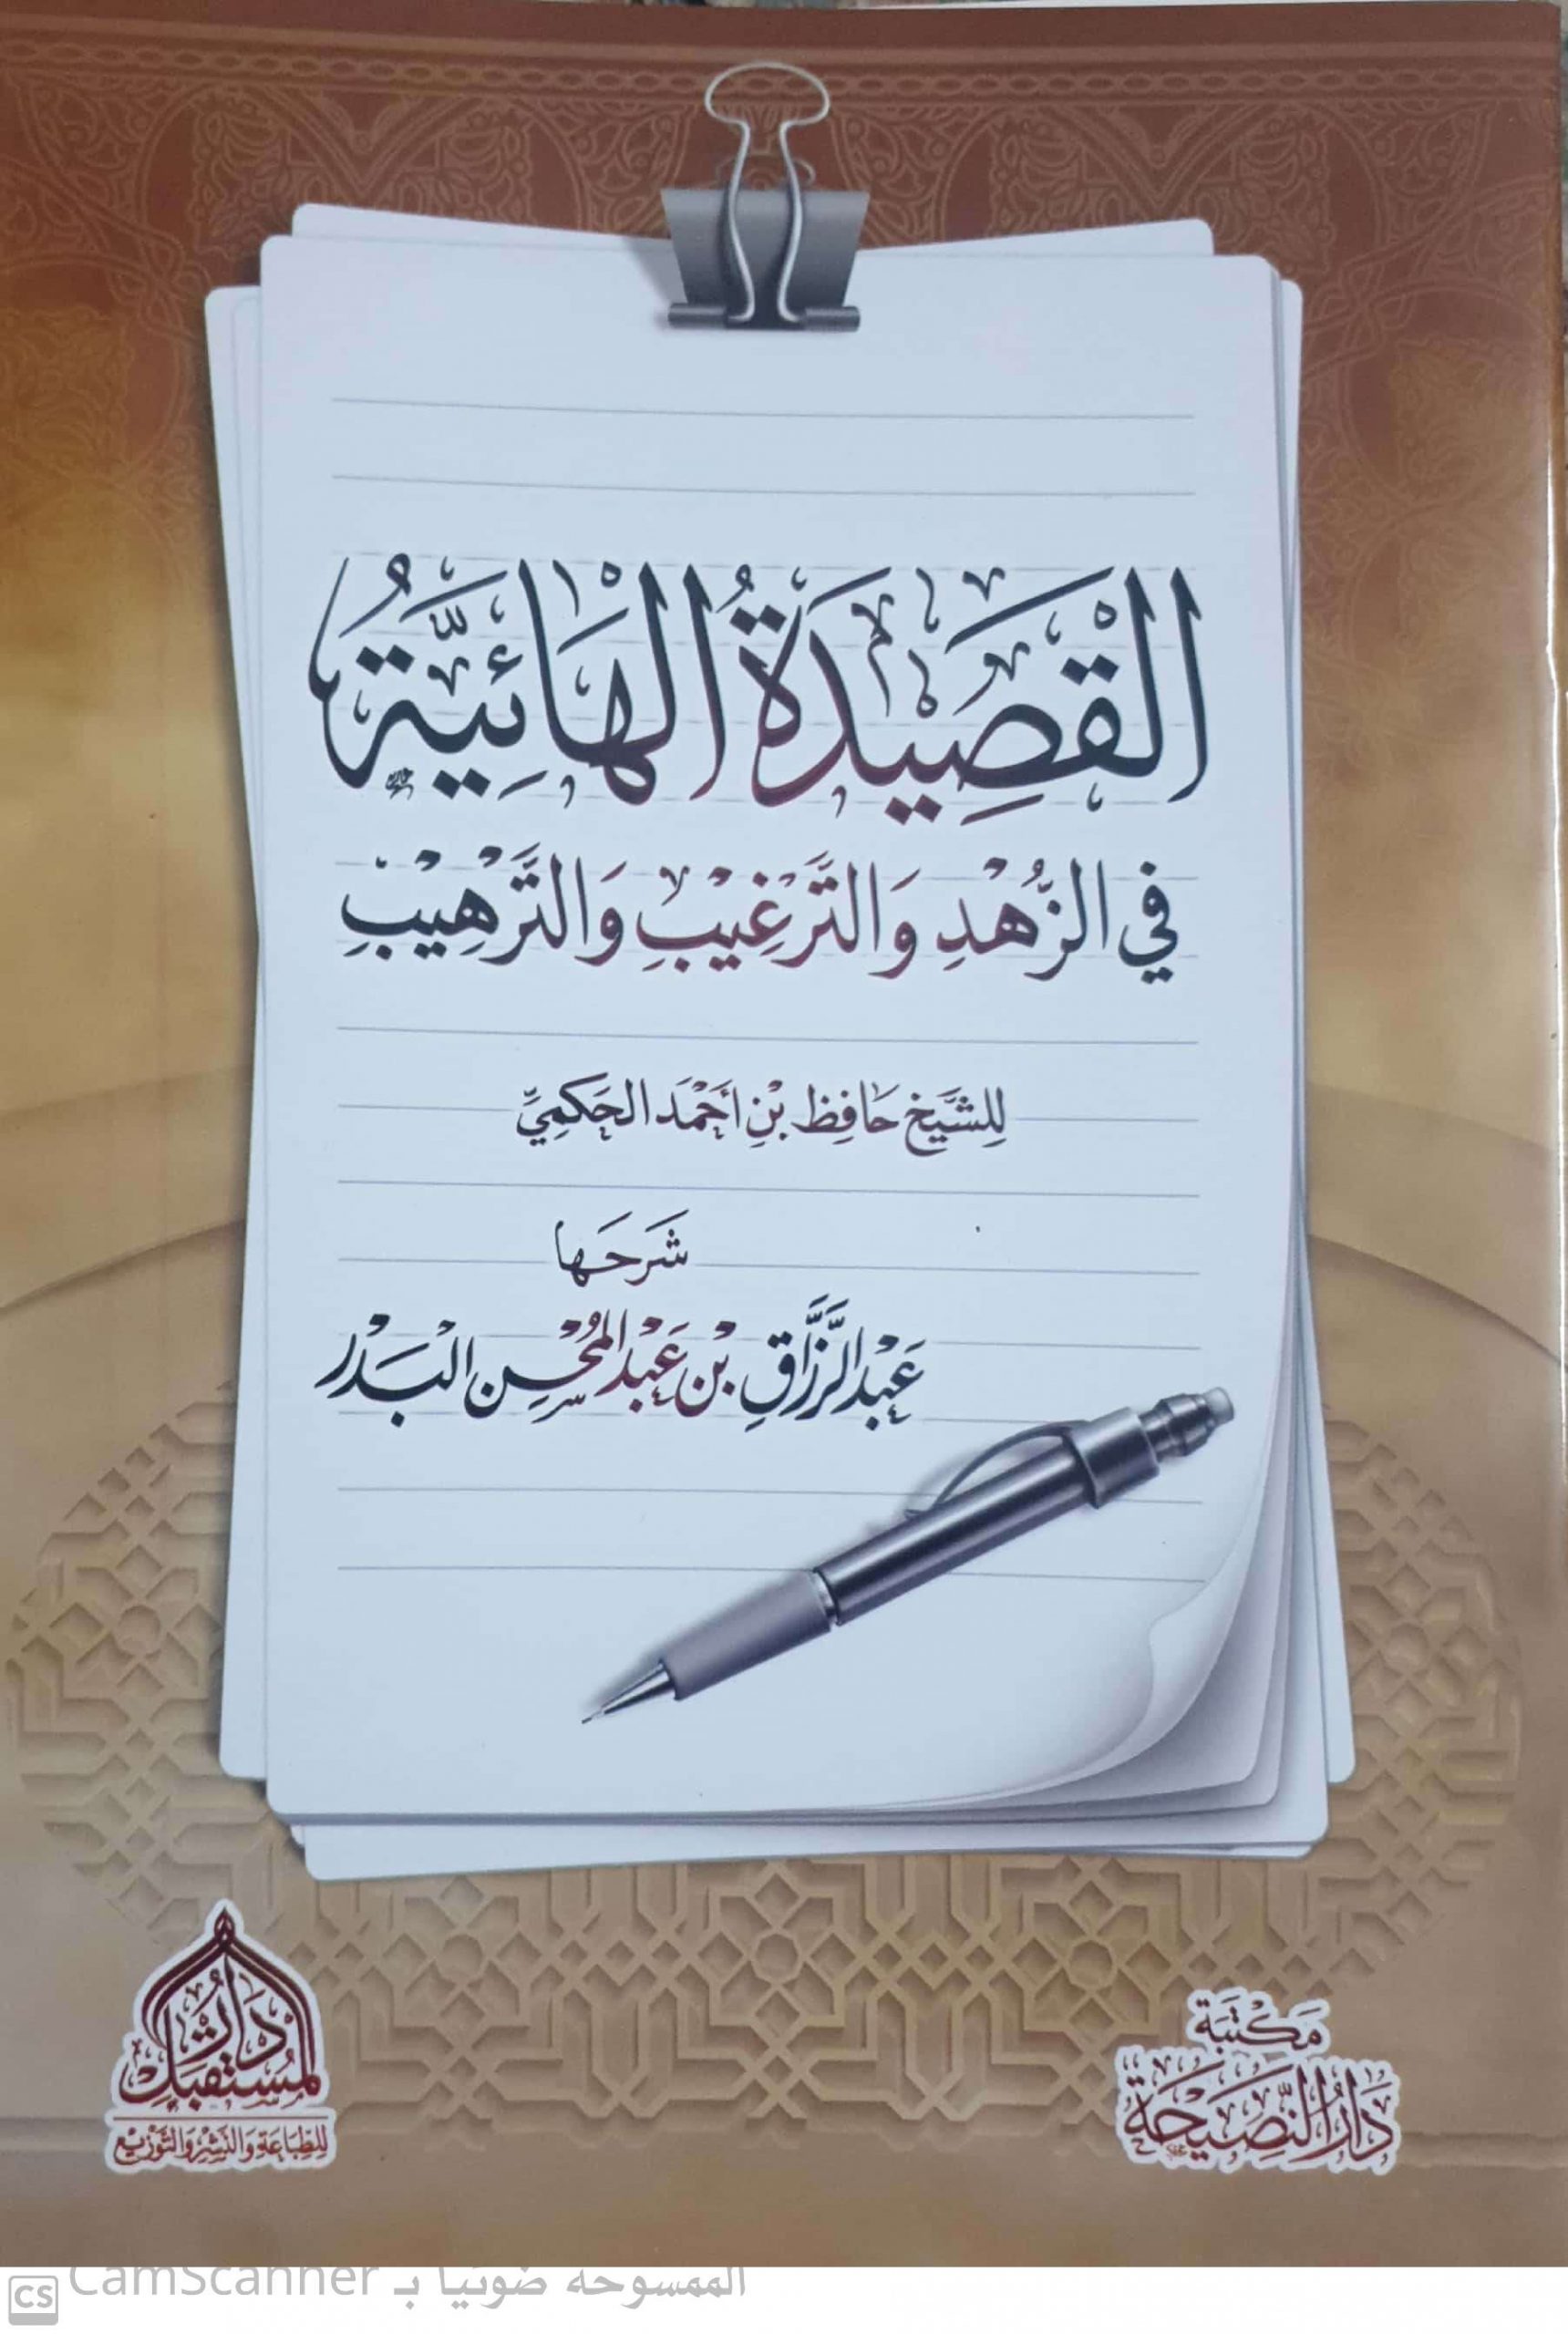 القَصِيدَةُ الْهَائِيَّةُ
فِي الزُّهْدِ وَالتَّرْغِيْبِ وَالتَّرْهِيْبِ
لِلشَّيْخِ حَافِظِ بْنِ أَحْمَدَ الحَكَمِيِّ
شَرَحَهَا
عَبْدُ الرَّزَّاقِ بْنُ عَبْدِ المُحْسِنِ البَدْر
مَكْتَبَة
دَارُ النَّصِيْحَة
دَارُ
المُسْتَقْبَل
لِلطِّبَاعَةِ وَالنَّشْرِ وَالتَّوْزِيْع
الممسوحة ضوئيا بـ CamScanner
CS